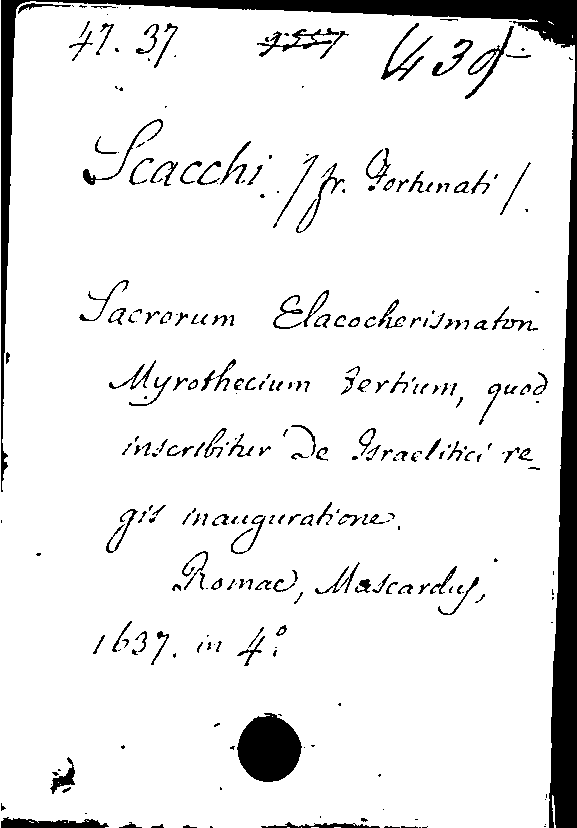 47. 37.
Scacchi. / fr. Fortunati /.
Sacrorum Elacocherismaton
Myrothecium tertium, quod
inscribitur De Israelitici re-
gis inauguratione.
Romae, Mascardus,
1637. in 4°.